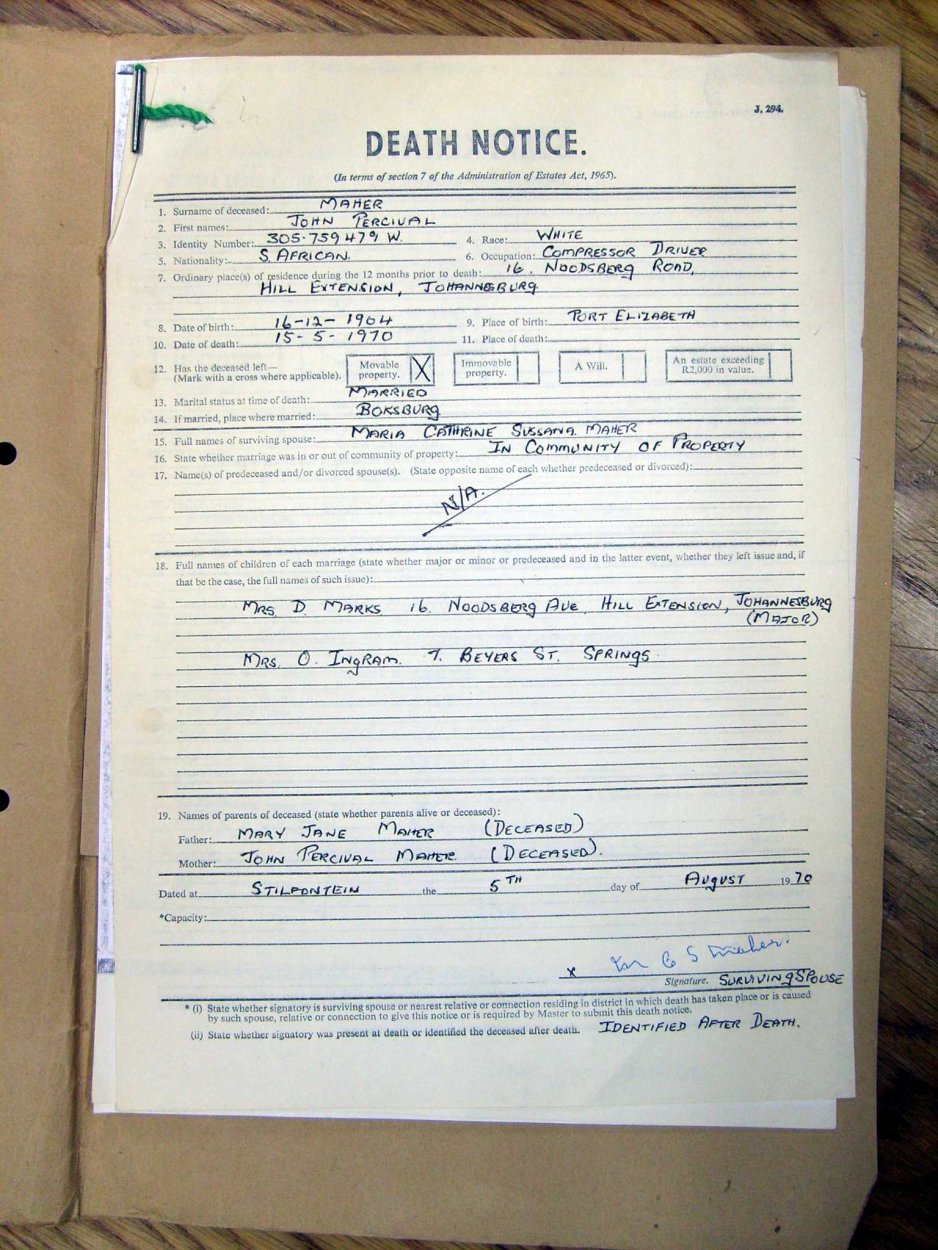 J. 294.
DEATH NOTICE.
(In terms of section 7 of the Administration of Estates Act, 1965).
1. Surname of deceased: MAHER
2. First names: JOHN PERCIVAL
3. Identity Number: 305-759479 W. 4. Race: WHITE
5. Nationality: S. AFRICAN. 6. Occupation: COMPRESSOR DRIVER
7. Ordinary place(s) of residence during the 12 months prior to death: 16. NOODSBERG ROAD,
HILL EXTENSION, JOHANNESBURG
8. Date of birth: 16-12-1904 9. Place of birth: PORT ELIZABETH
10. Date of death: 15-5-1970 11. Place of death:
12. Has the deceased left— Movable X Immovable A Will. An estate exceeding
(Mark with a cross where applicable). property. property. R2,000 in value.
13. Marital status at time of death: MARRIED
14. If married, place where married: BOKSBURG
15. Full names of surviving spouse: MARIA CATHRINE SUSSANA MAHER
16. State whether marriage was in or out of community of property: IN COMMUNITY OF PROPERTY
17. Name(s) of predeceased and/or divorced spouse(s). (State opposite name of each whether predeceased or divorced):
N/A.
18. Full names of children of each marriage (state whether major or minor or predeceased and in the latter event, whether they left issue and, if
that be the case, the full names of such issue):
MRS. D. MARKS 16. NOODSBERG AVE, HILL EXTENSION, JOHANNESBURG
(MAJOR)
MRS. O. INGRAM. 7. BEYERS ST. SPRINGS.
19. Names of parents of deceased (state whether parents alive or deceased):
Father: MARY JANE MAHER (DECEASED)
Mother: JOHN PERCIVAL MAHER. (DECEASED).
Dated at STILFONTEIN the 5TH day of AUGUST 1970
*Capacity:
x M C S Maher.
Signature. SURVIVING SPOUSE
* (i) State whether signatory is surviving spouse or nearest relative or connection residing in district in which death has taken place or is caused
by such spouse, relative or connection to give this notice or is required by Master to submit this death notice.
(ii) State whether signatory was present at death or identified the deceased after death. IDENTIFIED AFTER DEATH.